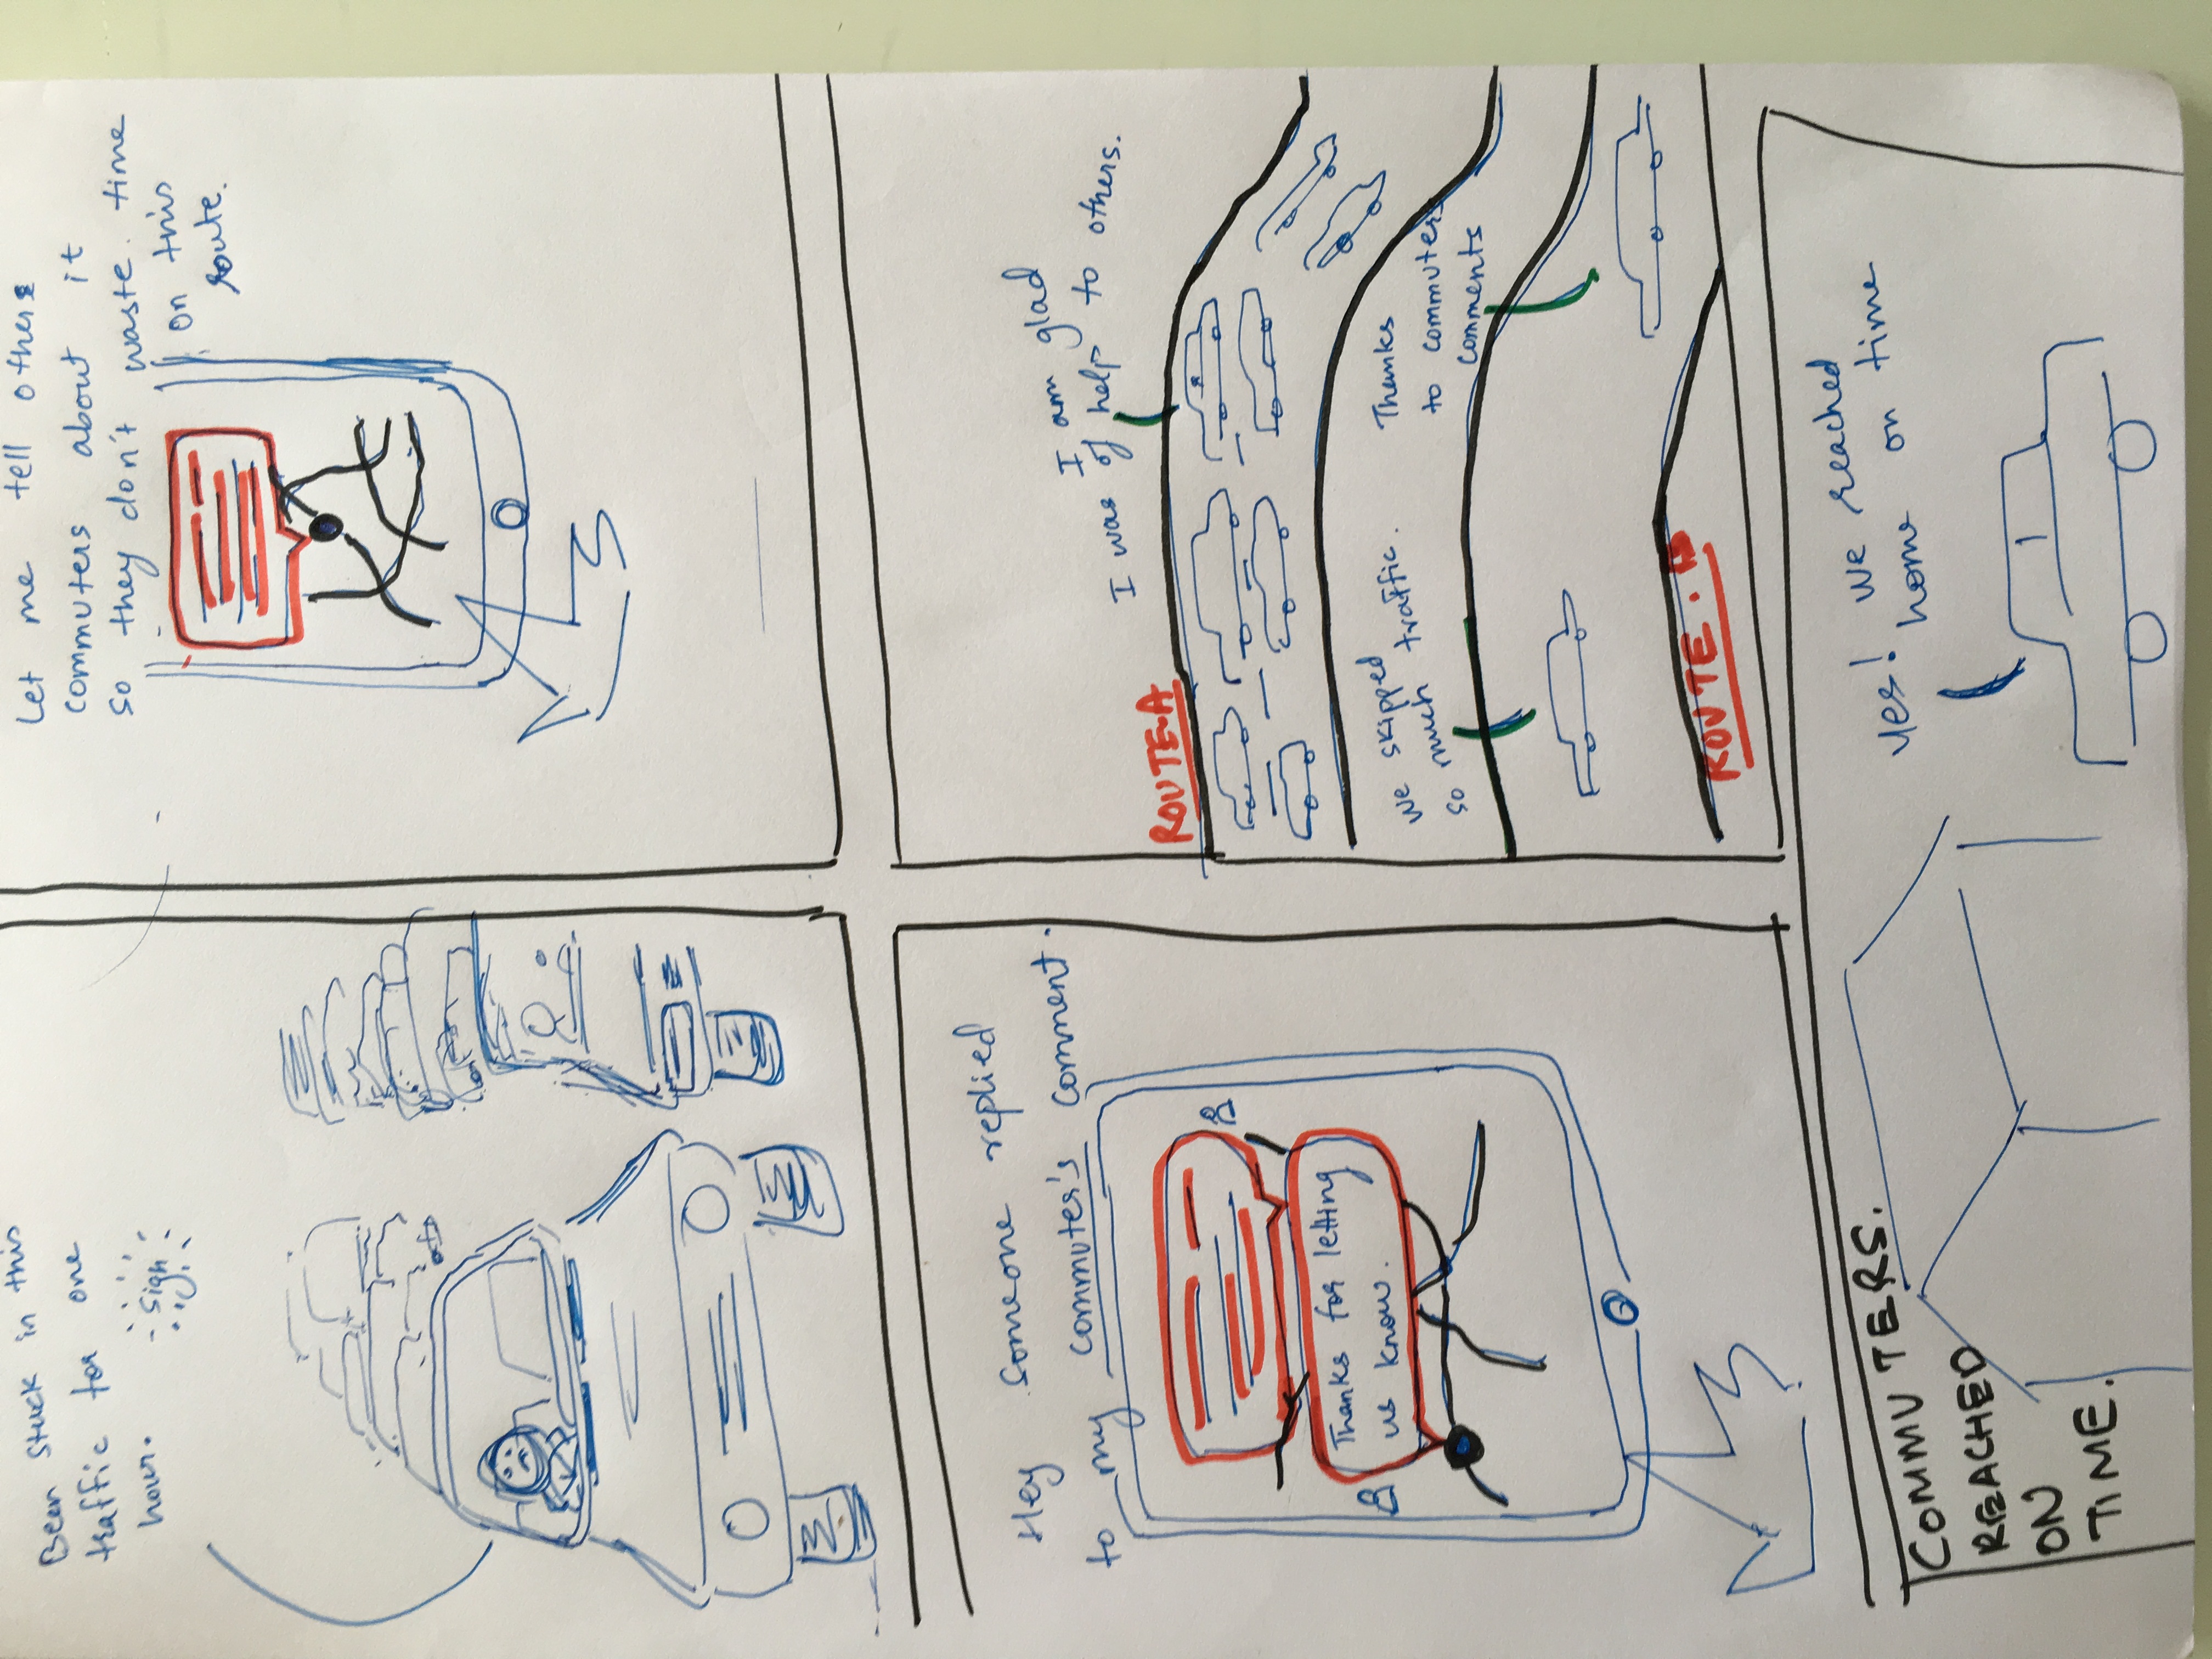 Been stuck in this
traffic for one
hour.
Sigh
Let me tell others
commuters about it
so they don't waste time
on this
route.
Hey someone replied
to my commuter's comment.
Thanks for letting
us know.
I am glad
I was of help to others.
ROUTE-A
we skipped
so much traffic.
Thanks
to commuters
comments
ROUTE. B
COMMUTERS.
REACHED
ON
TIME.
Yes! we reached
home on time